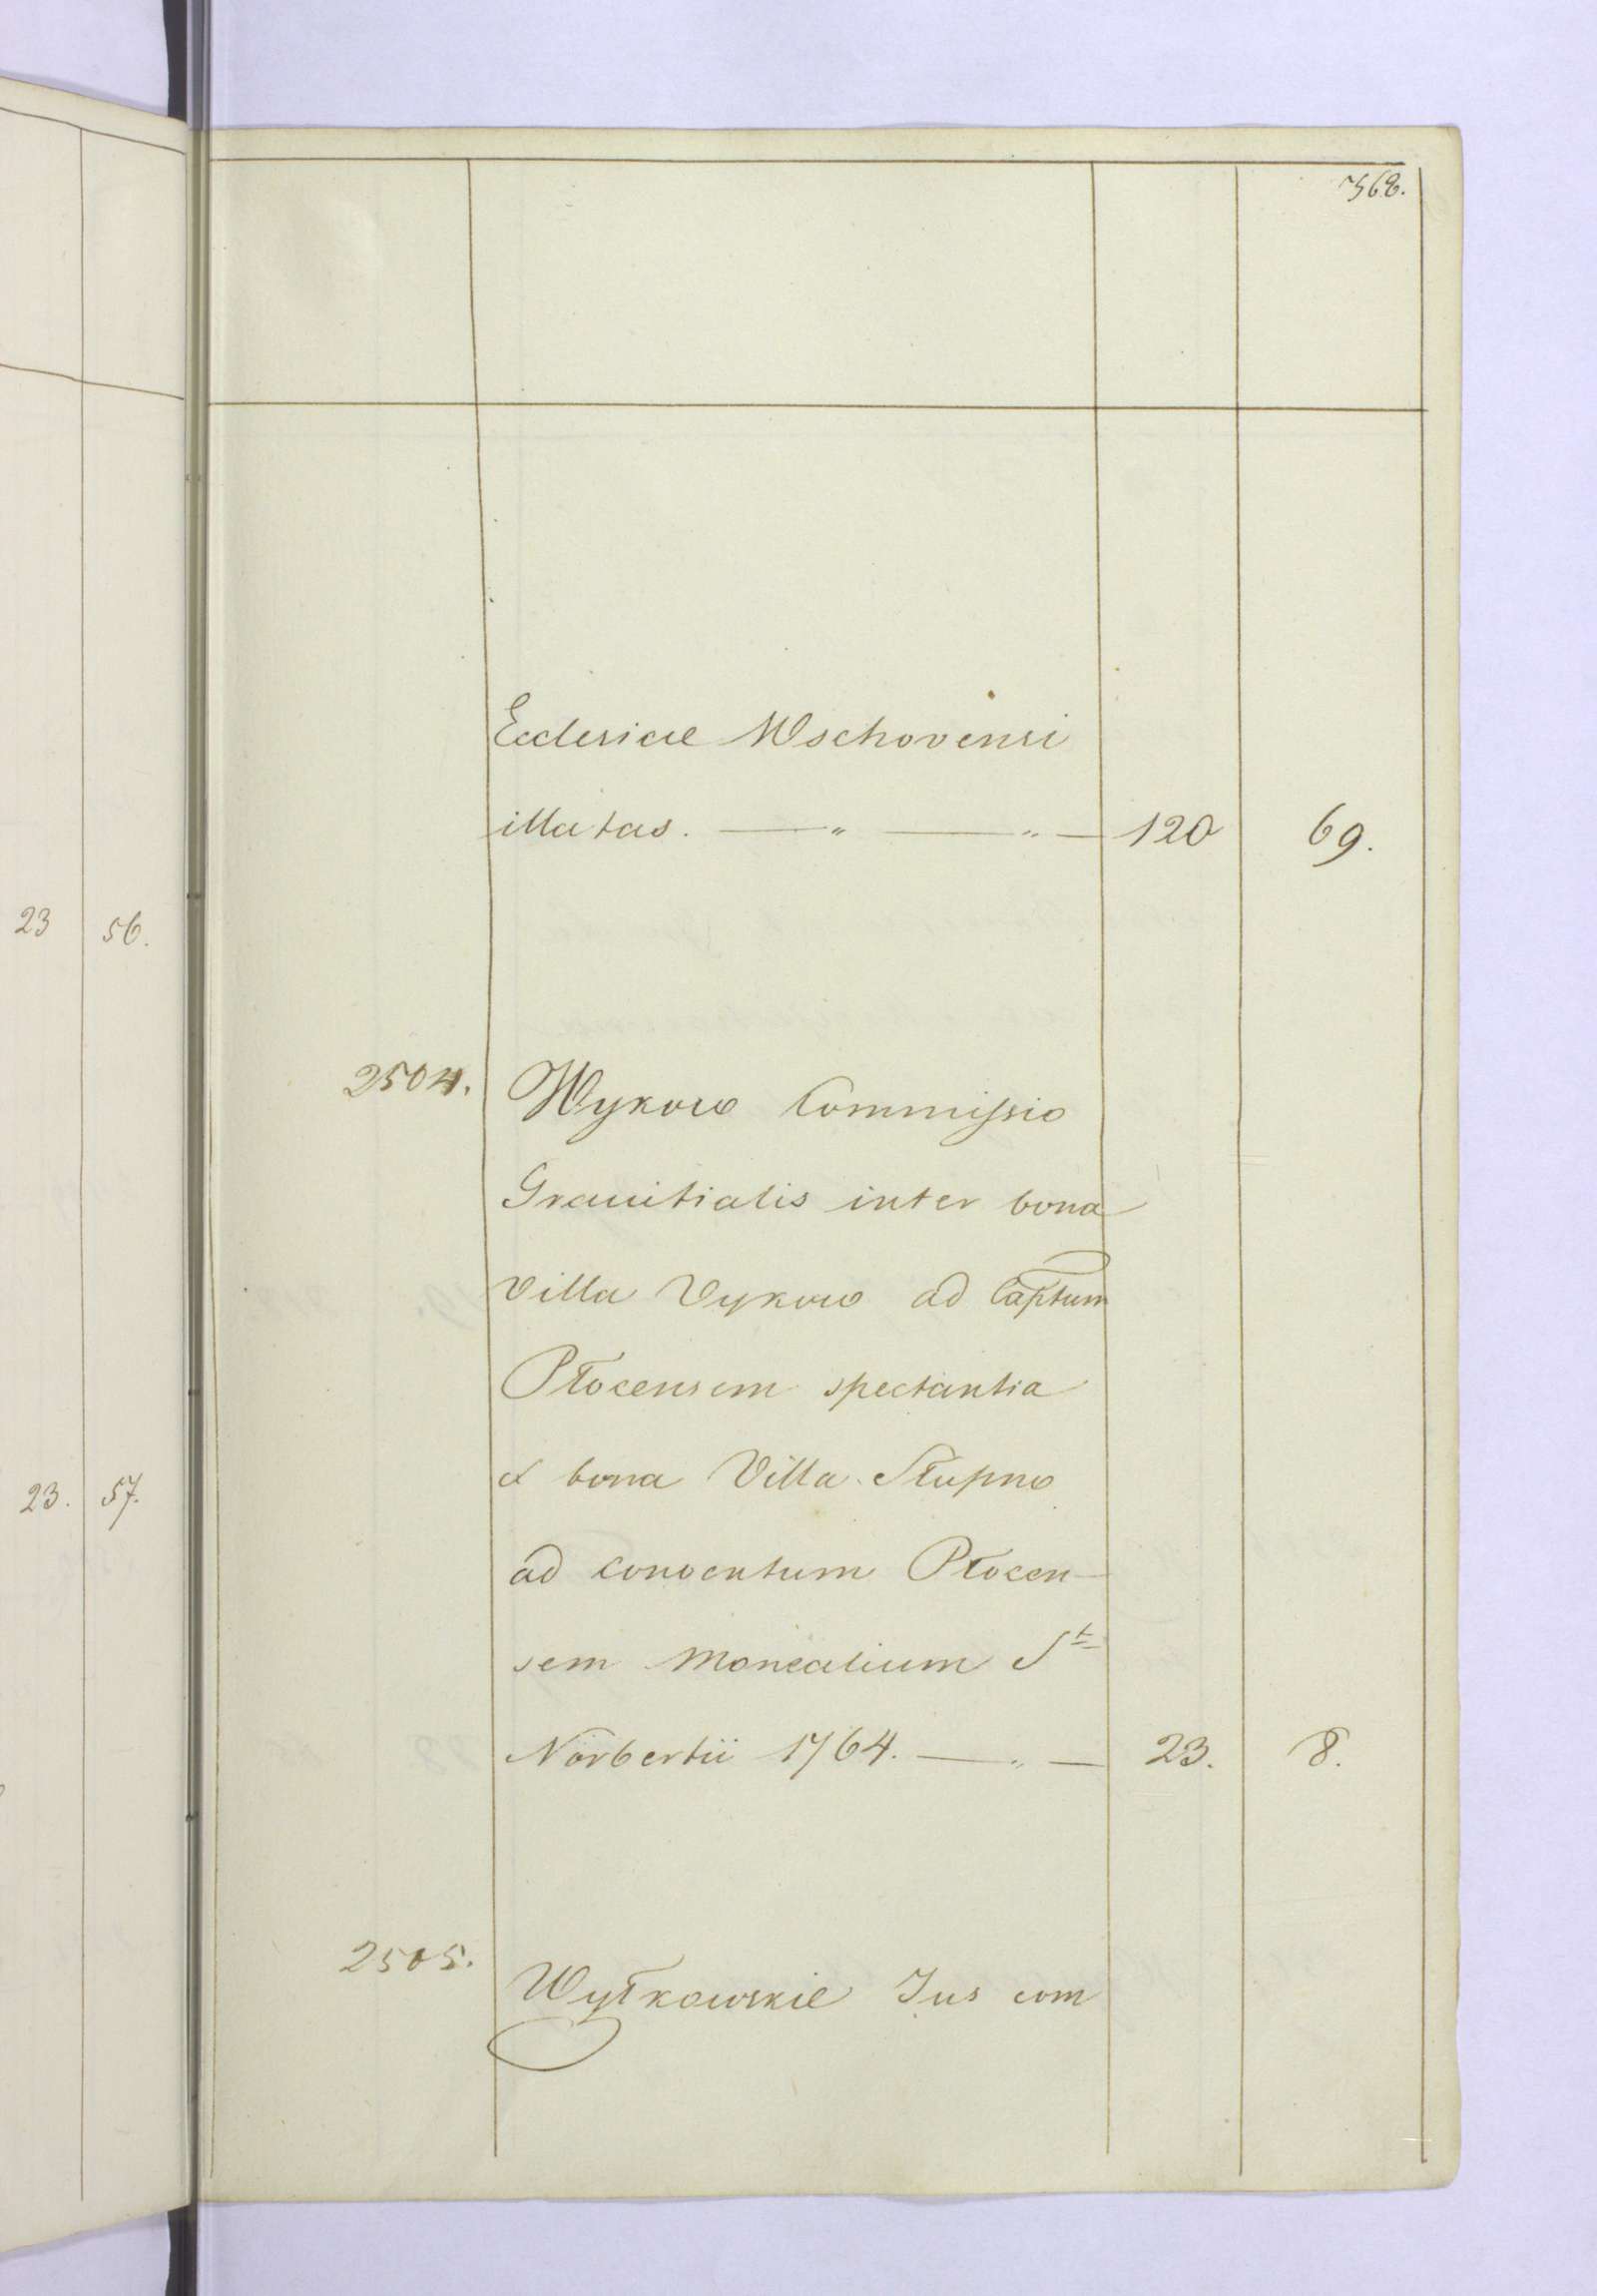 368.
Ecclesiae Wschovensi
illatas. — " — " — 120 69.
23 56.
2504. Wykowo Commissio
Granitialis inter bona
Villa Vykowo ad Captum
Płocensem spectantia
et bona Villa Słupno
23. 57.
ad conventum Płocen-
sem Monealium St
Norbertii 1764. — " — 23. 8.
2505. Wyłkowskie Jus com